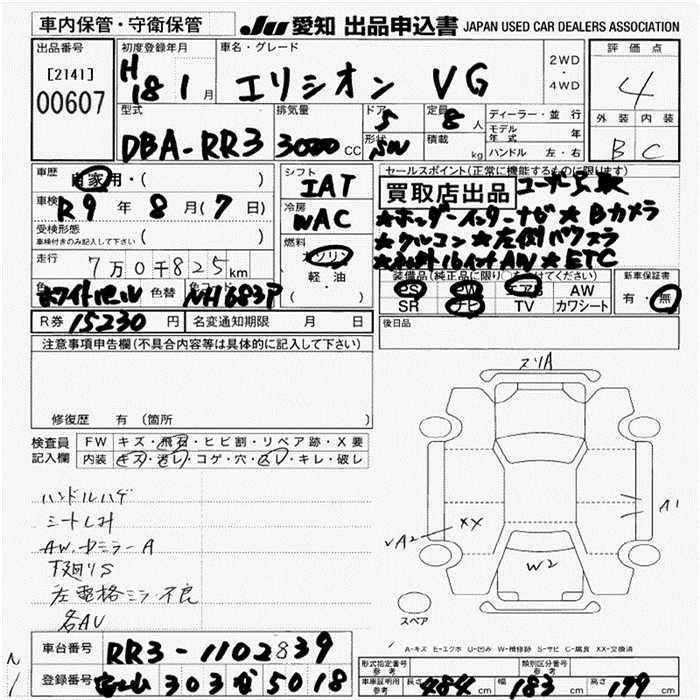 車内保管・守衛保管
JU 愛知 出品申込書 JAPAN USED CAR DEALERS ASSOCIATION
出品番号
[2141]
00607
初度登録年月
H18 1月
車名・グレード
エリシオン VG
2WD
・
4WD
評価点
4
外装 内装
B C
型式
DBA-RR3
排気量
3000 CC
ドア
5
形状
SW
定員
8人
積載
kg
ディーラー・並行
モデル年式 年
ハンドル 左・右
車歴 自家用・( )
車検 R9年 8月(7日)
受検形態
車検付きのみ記入して下さい ( )
走行 7万0千825km
色 ホワイトパール 色替 色コード NH683P
R券 15230円 名変通知期限 月 日
シフト
IAT
冷房
WAC
燃料
ガソリン
軽・油
( )
セールスポイント(正常に機能するものに限ります)
買取店出品
★ホンダーインターナビ★Bカメラ
★クルコン★左側パワスラ
16インチAW★ETC
装備品(純正品に限り○をつけてください)
PS PW エアB AW
SR ナビ TV カワシート
新車保証書
有・無
後日品
注意事項申告欄(不具合内容等は具体的に記入して下さい)
修復歴 有 (箇所
検査員記入欄
FW キズ・飛石・ヒビ割・リペア跡・X要
内装 キズ・汚レ・コゲ・穴・スレ・キレ・破レ
ハンドルハゲ
シートしみ
AW.ドミラーA
下廻りS
左電格ミラー不良
各AU
スリA
A1
XX
W2
スペア
A-キズ E-エクボ U-凹み W-補修跡 S-サビ C-腐食 XX-交換済
車台番号 RR3-1102839
登録番号 303 5018
形式指定番号 参考
類別区分番号 参考
車庫証明用 参考 長さ 484cm 幅 183cm 高さ 179cm